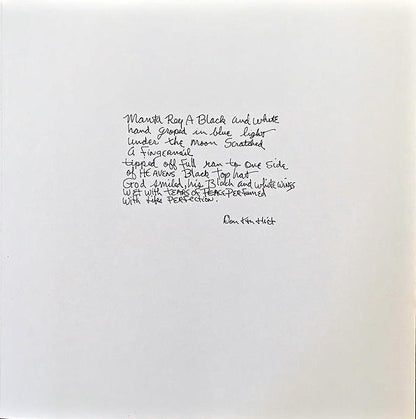 Manta Ray A Black and white
hand groped in blue light
under the moon Scratched
A Fingernail
tipped off full ran to one side
of HEAVENS Black Top hat
God smiled, his Black and white wings
wet with TEARS of PEACE Perfumed
with Life PERFECTION.
Don Van Vliet